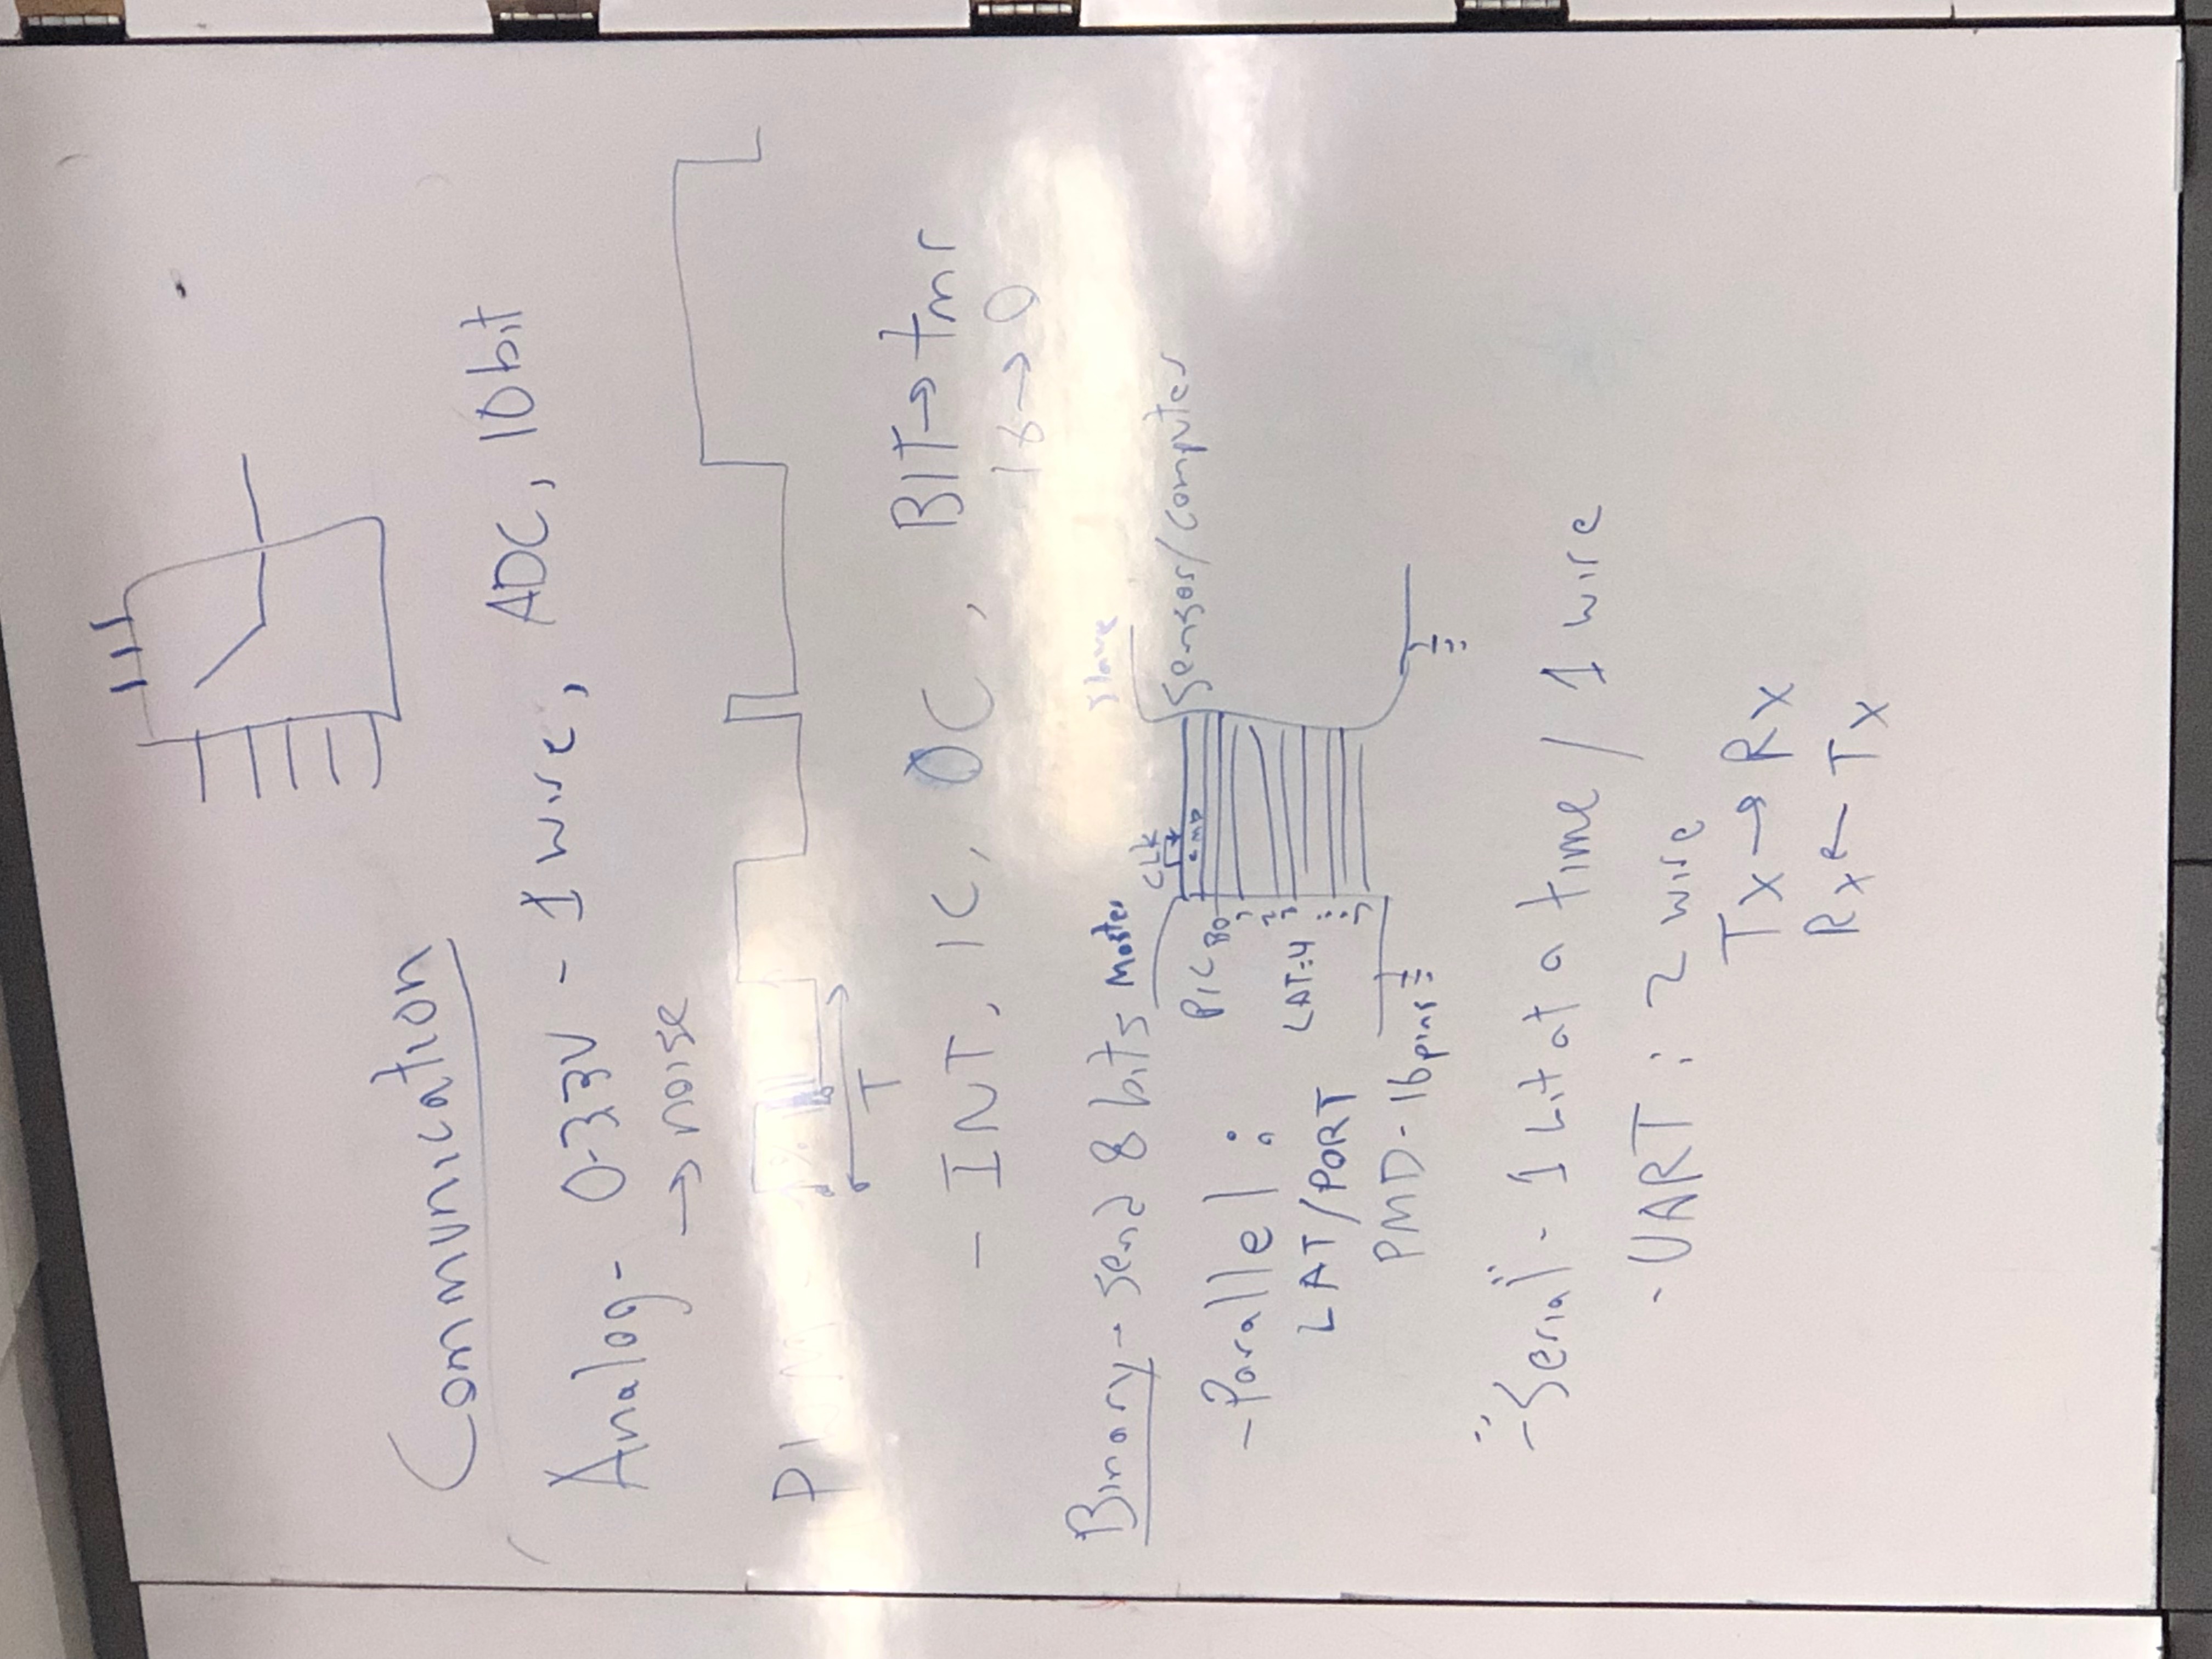 Communication
Analog - 0-3.3V - 1 wire, ADC, 10bit
→ noise
PWM -
T
- INT, IC, OC, BIT → tmr
16 → 0
Binary - Send 8 bits
Master
Slave
CLK
CMD
Sensor/computer
PIC B0
1
2
3
- Parallel :
LAT:4
LAT/PORT
7
PMD - 16pins
- "Serial" - 1 bit at a time / 1 wire
- UART : 2 wire
Tx → Rx
Rx ← Tx